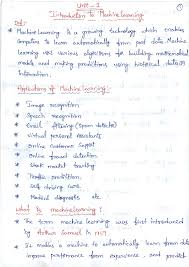 Unit - 1
Introduction To Machine Learning
Def:-
* Machine Learning is a growing technology which enables
computers to learn automatically from past data. Machine
Learning uses various algorithms for building mathematical
models and making predictions using historical data or
Information.
Applications of Machine Learning:
* Image recognition
* Speech recognition
* Email filtering (spam detector)
* Virtual personal assistant
* Online customer support
* Online fraud detection
* Stock market trading
* Traffic prediction.
* Self driving cars
* Medical diagnosis etc.
What is machine learning
* The term machine learning was first introduced
by Arthur Samuel in 1959.
* It enables a machine to automatically learn from data
improve performance from experience, and